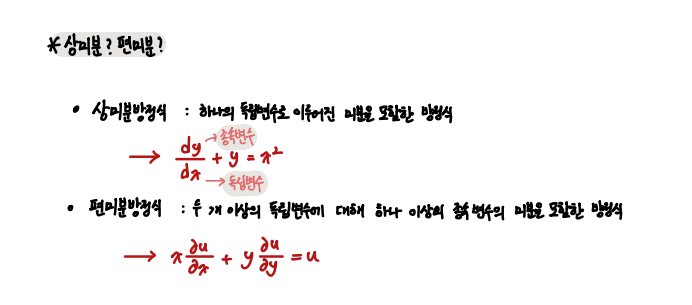 * 상미분? 편미분?
• 상미분방정식 : 하나의 독립변수로 이루어진 미분을 포함한 방정식
→ dy/dx + y = x² → 종속변수 → 독립변수
• 편미분방정식 : 두 개 이상의 독립변수에 대해 하나 이상의 종속변수의 미분을 포함한 방정식
→ x ∂u/∂x + y ∂u/∂y = u